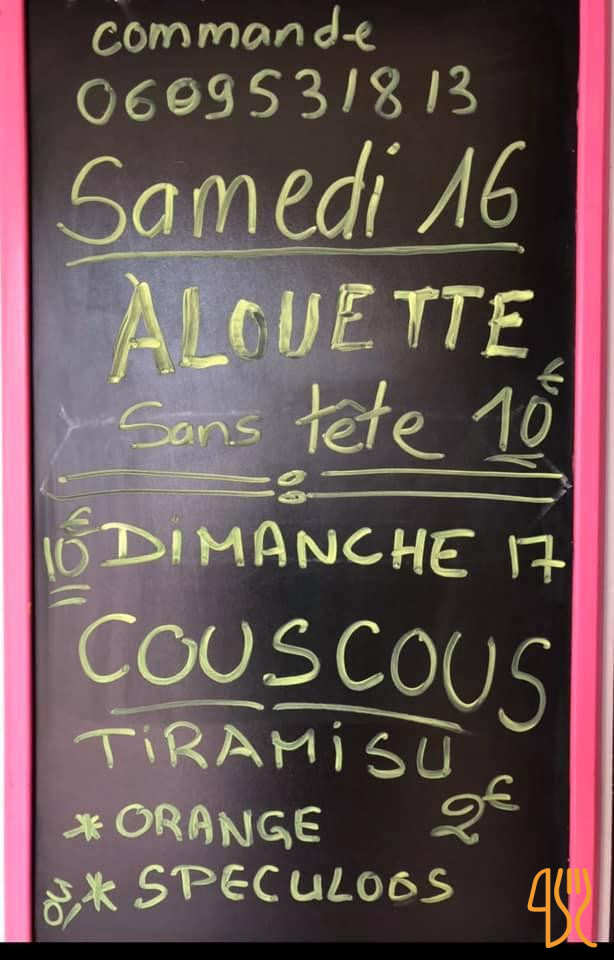 commande
0609531813
Samedi 16
ALOUETTE
Sans tête 10€
10€ DIMANCHE 17
COUSCOUS
TIRAMISU
* ORANGE 2€
ou * SPECULOOS